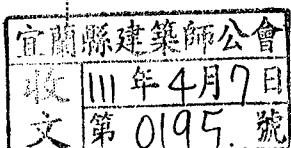 宜蘭縣建築師公會
收文
111年4月7日
第0195.號